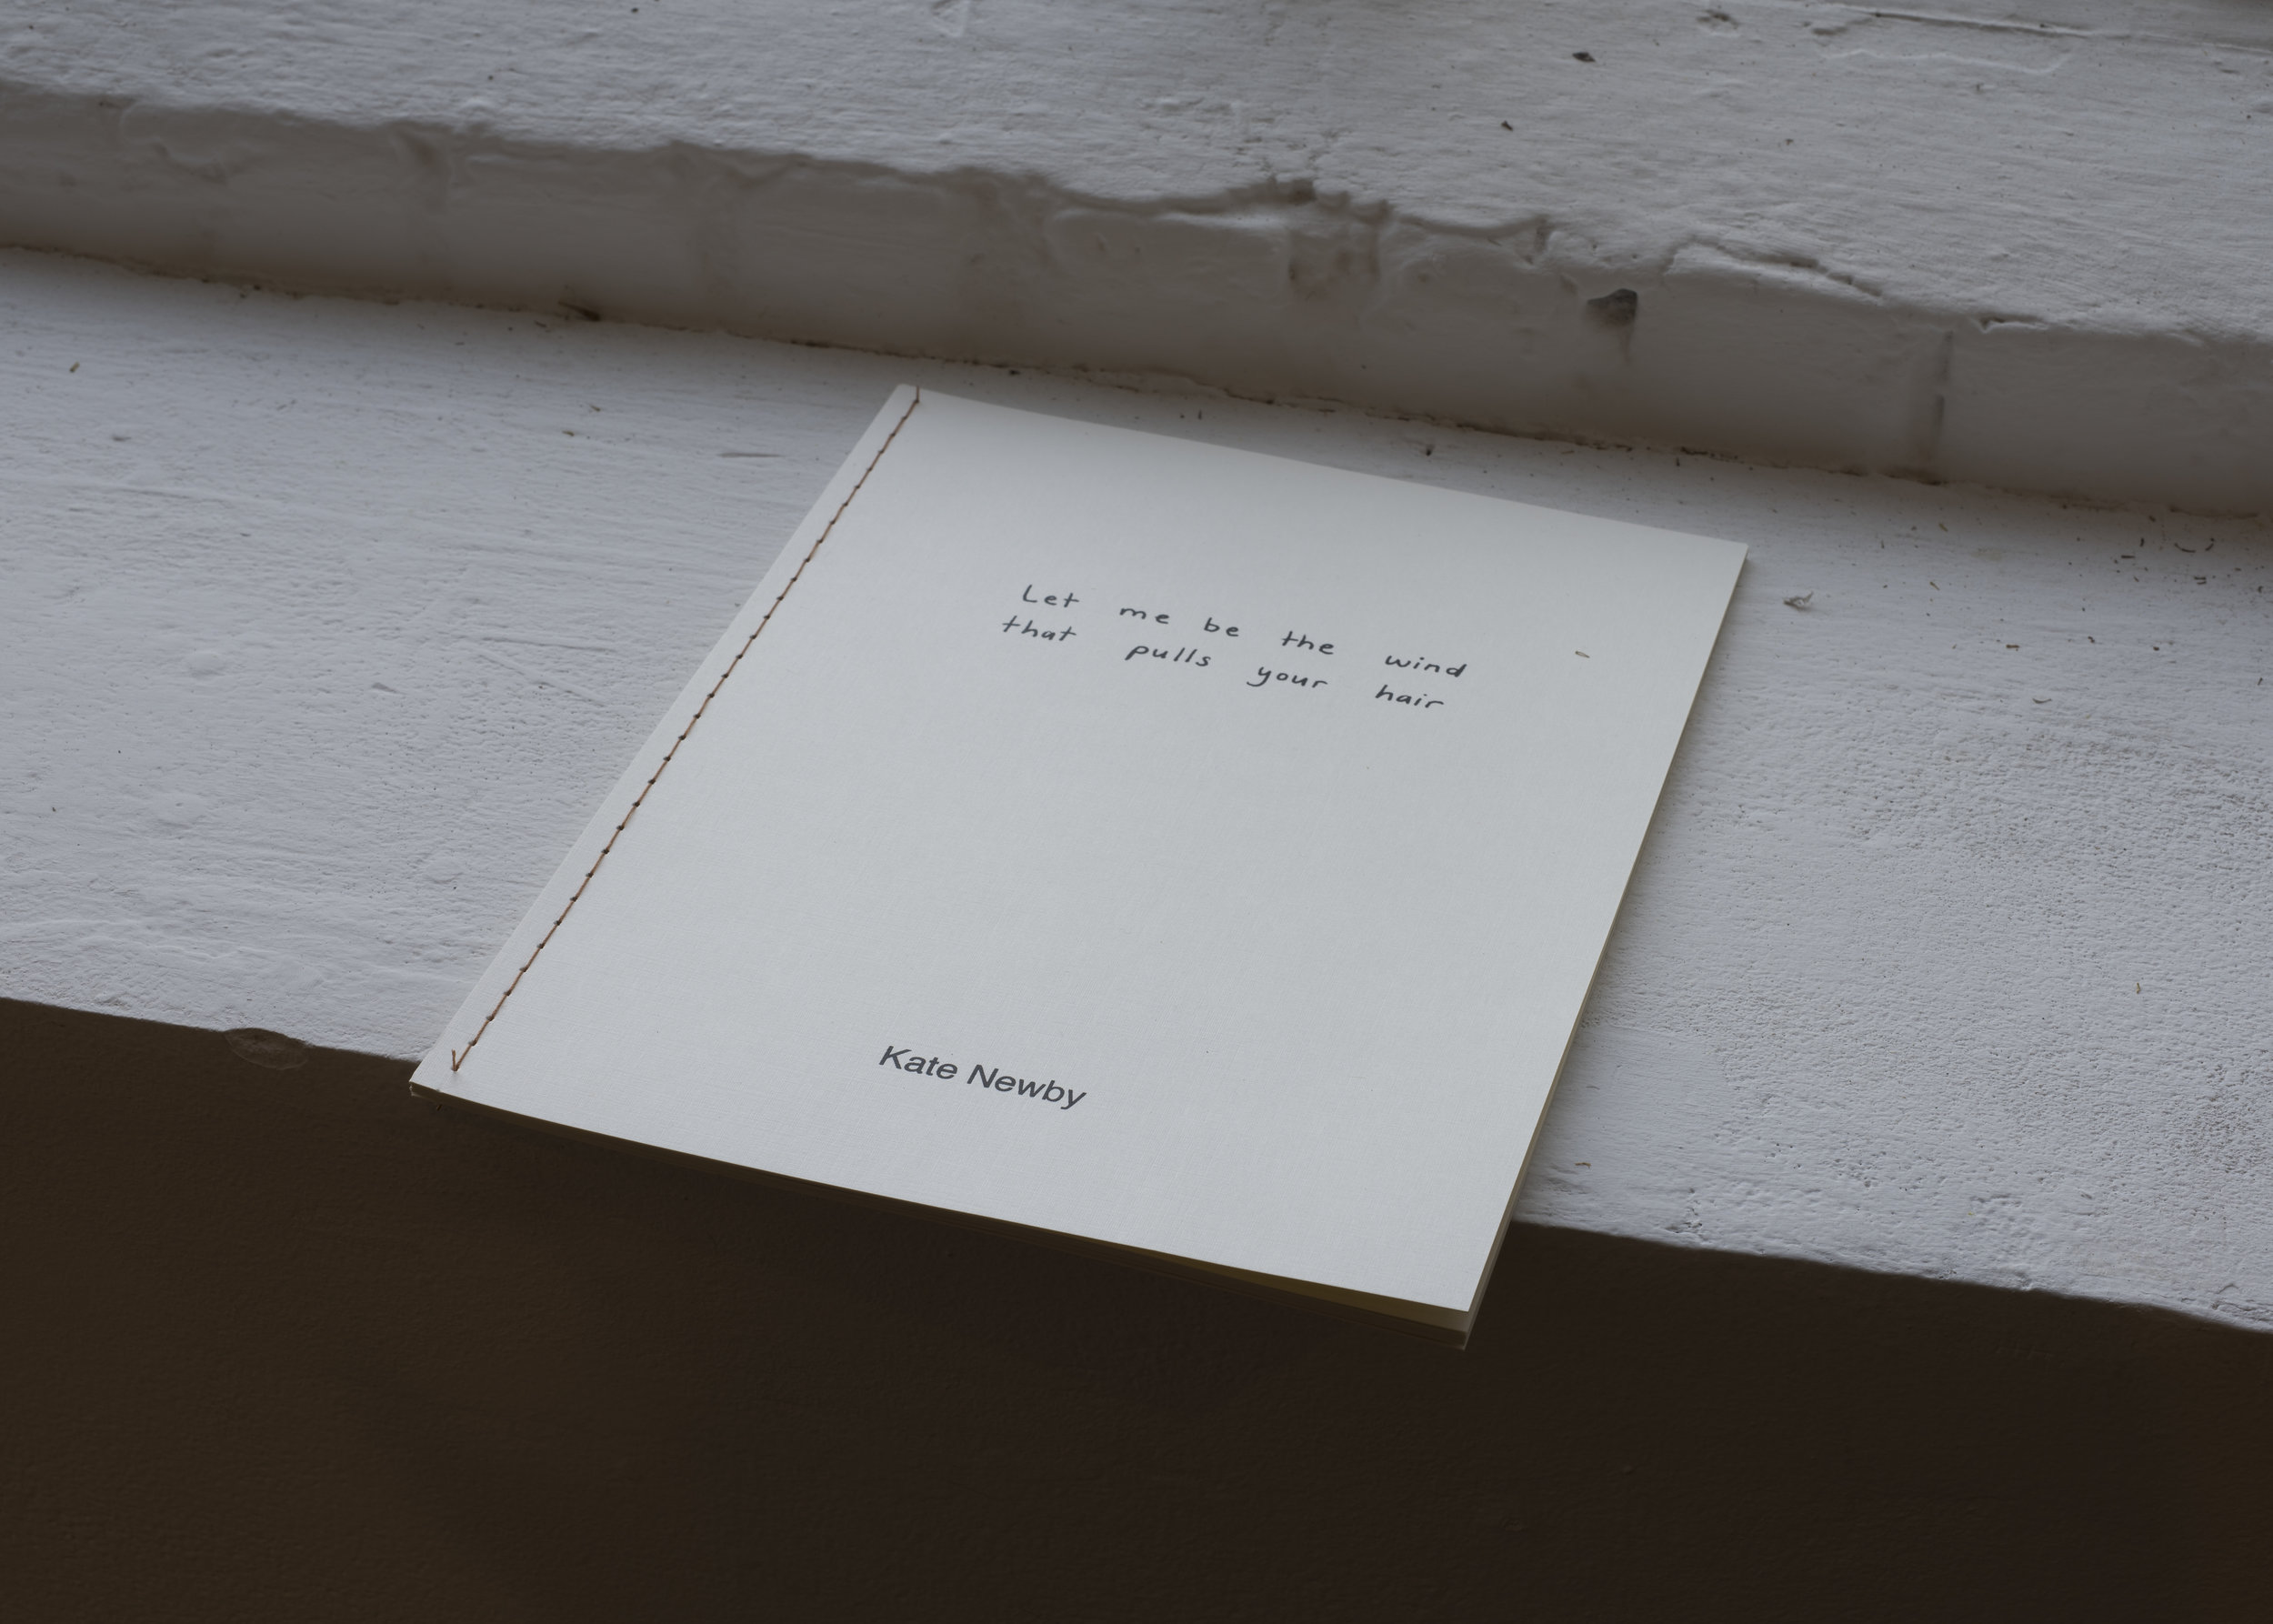 Let me be the wind
that pulls your hair
Kate Newby